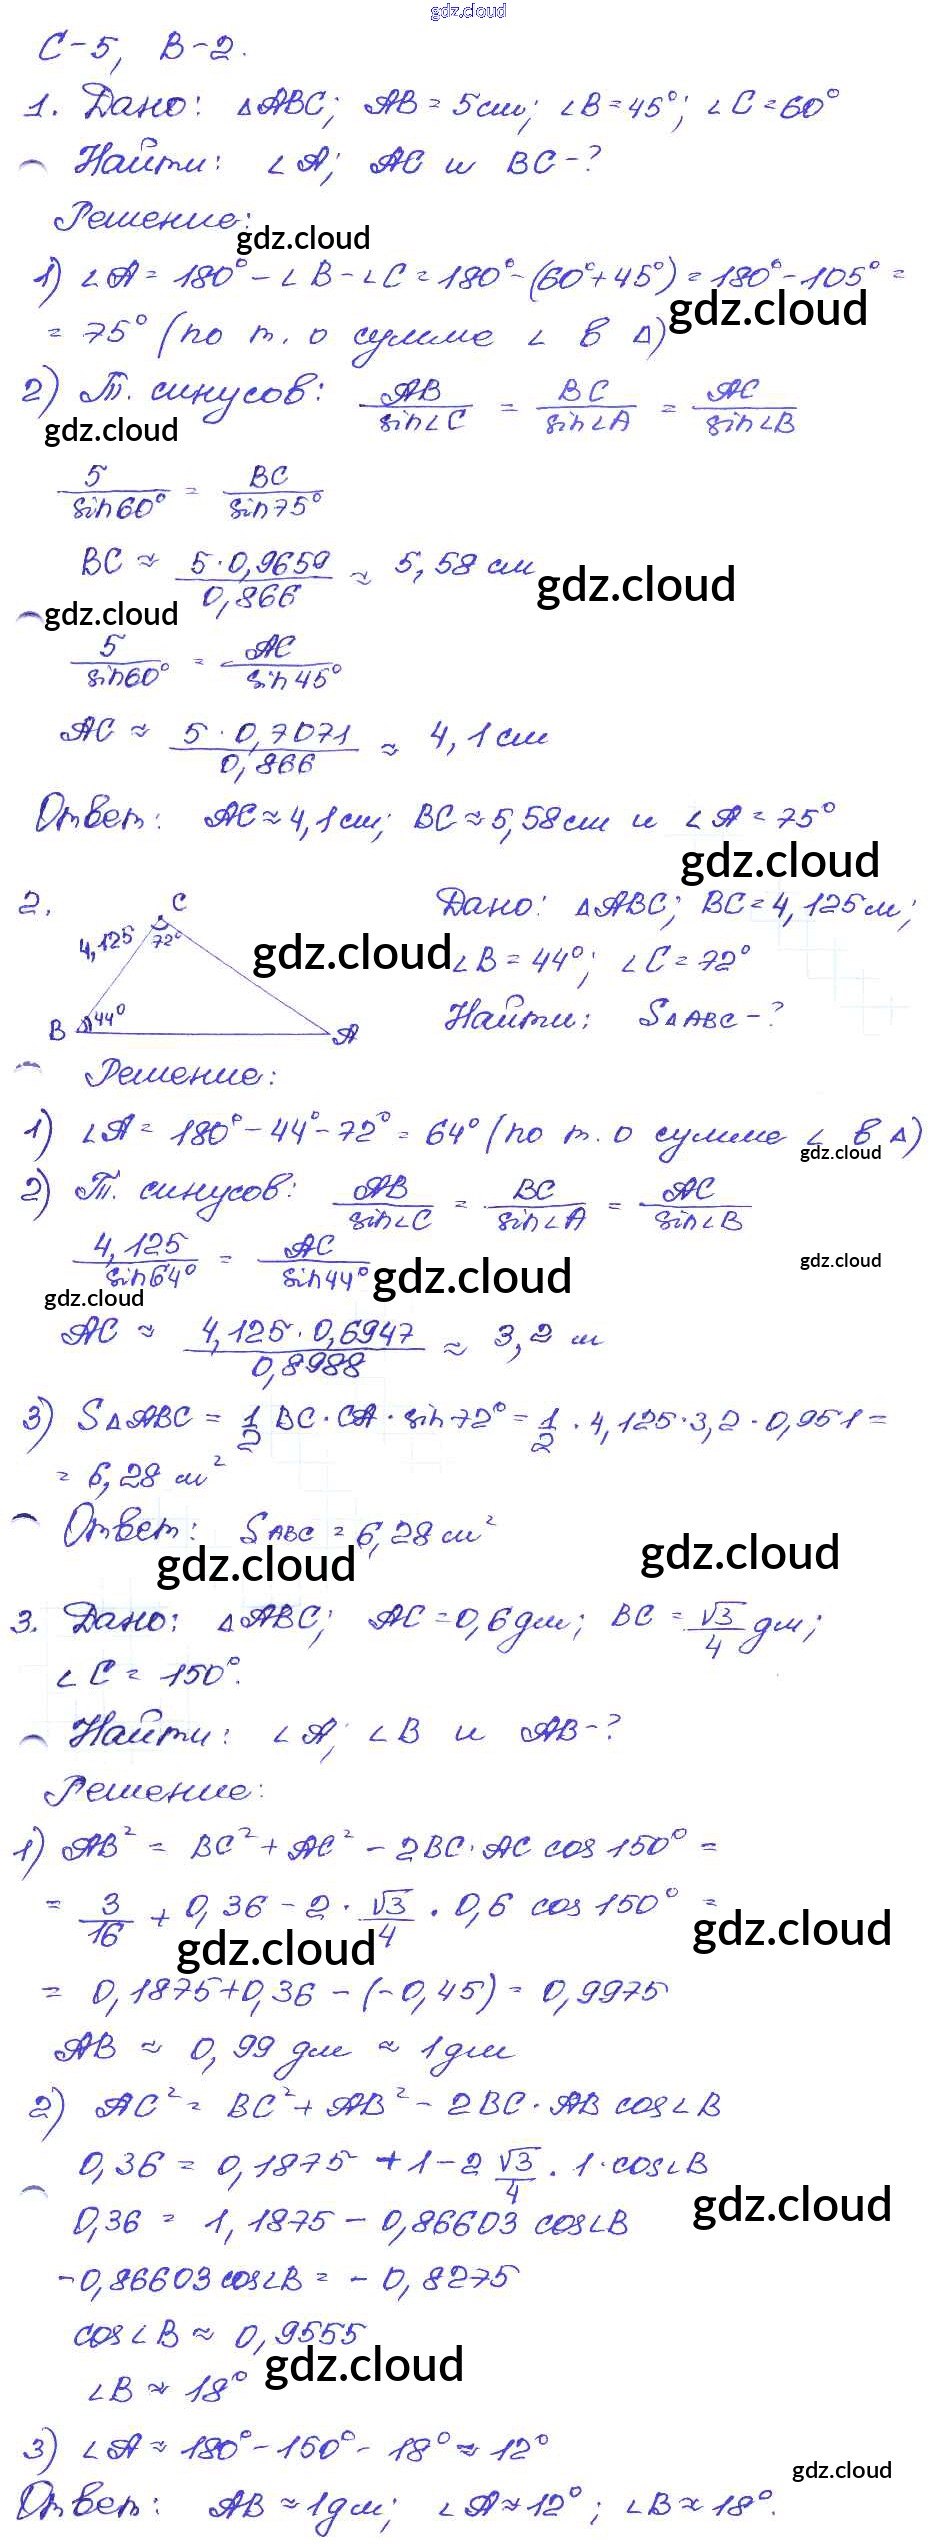 gdz.cloud
С-5, В-2.
1. Дано: △ABC; AB = 5см; ∠B = 45°; ∠C = 60°
Найти: ∠A; AC и BC - ?
Решение:
gdz.cloud
1) ∠A = 180° - ∠B - ∠C = 180° - (60° + 45°) = 180° - 105° =
gdz.cloud
= 75° (по т. о сумме ∠ в △)
2) Т. синусов: AB/sin∠C = BC/sin∠A = AC/sin∠B
gdz.cloud
5/sin60° = BC/sin75°
BC ≈ 5·0,9659/0,866 ≈ 5,58 см
gdz.cloud
gdz.cloud
5/sin60° = AC/sin45°
AC ≈ 5·0,7071/0,866 ≈ 4,1 см
Ответ: AC ≈ 4,1см; BC ≈ 5,58см и ∠A = 75°
gdz.cloud
2.
C
4,125
72°
B
44°
A
Дано: △ABC; BC = 4,125м;
gdz.cloud
∠B = 44°; ∠C = 72°
Найти: S△ABC - ?
Решение:
1) ∠A = 180° - 44° - 72° = 64° (по т. о сумме ∠ в △)
gdz.cloud
2) Т. синусов: AB/sin∠C = BC/sin∠A = AC/sin∠B
4,125/sin64° = AC/sin44°
gdz.cloud
gdz.cloud
gdz.cloud
AC ≈ 4,125·0,6947/0,8988 ≈ 3,2 м
3) S△ABC = 1/2 BC·CA·sin72° = 1/2·4,125·3,2·0,951 =
= 6,28 м²
Ответ: SABC = 6,28 м²
gdz.cloud
gdz.cloud
3. Дано: △ABC; AC = 0,6дм; BC = √3/4 дм;
∠C = 150°.
Найти: ∠A; ∠B и AB - ?
Решение:
1) AB² = BC² + AC² - 2BC·AC cos150° =
= 3/16 + 0,36 - 2·√3/4·0,6 cos150° =
gdz.cloud
gdz.cloud
= 0,1875 + 0,36 - (-0,45) = 0,9975
AB ≈ 0,99 дм ≈ 1дм
2) AC² = BC² + AB² - 2BC·AB cos∠B
0,36 = 0,1875 + 1 - 2 √3/4·1·cos∠B
gdz.cloud
0,36 = 1,1875 - 0,86603 cos∠B
-0,86603 cos∠B = -0,8275
cos∠B ≈ 0,9555
gdz.cloud
∠B ≈ 18°
3) ∠A ≈ 180° - 150° - 18° ≈ 12°
gdz.cloud
Ответ: AB ≈ 1дм; ∠A ≈ 12°; ∠B ≈ 18°.